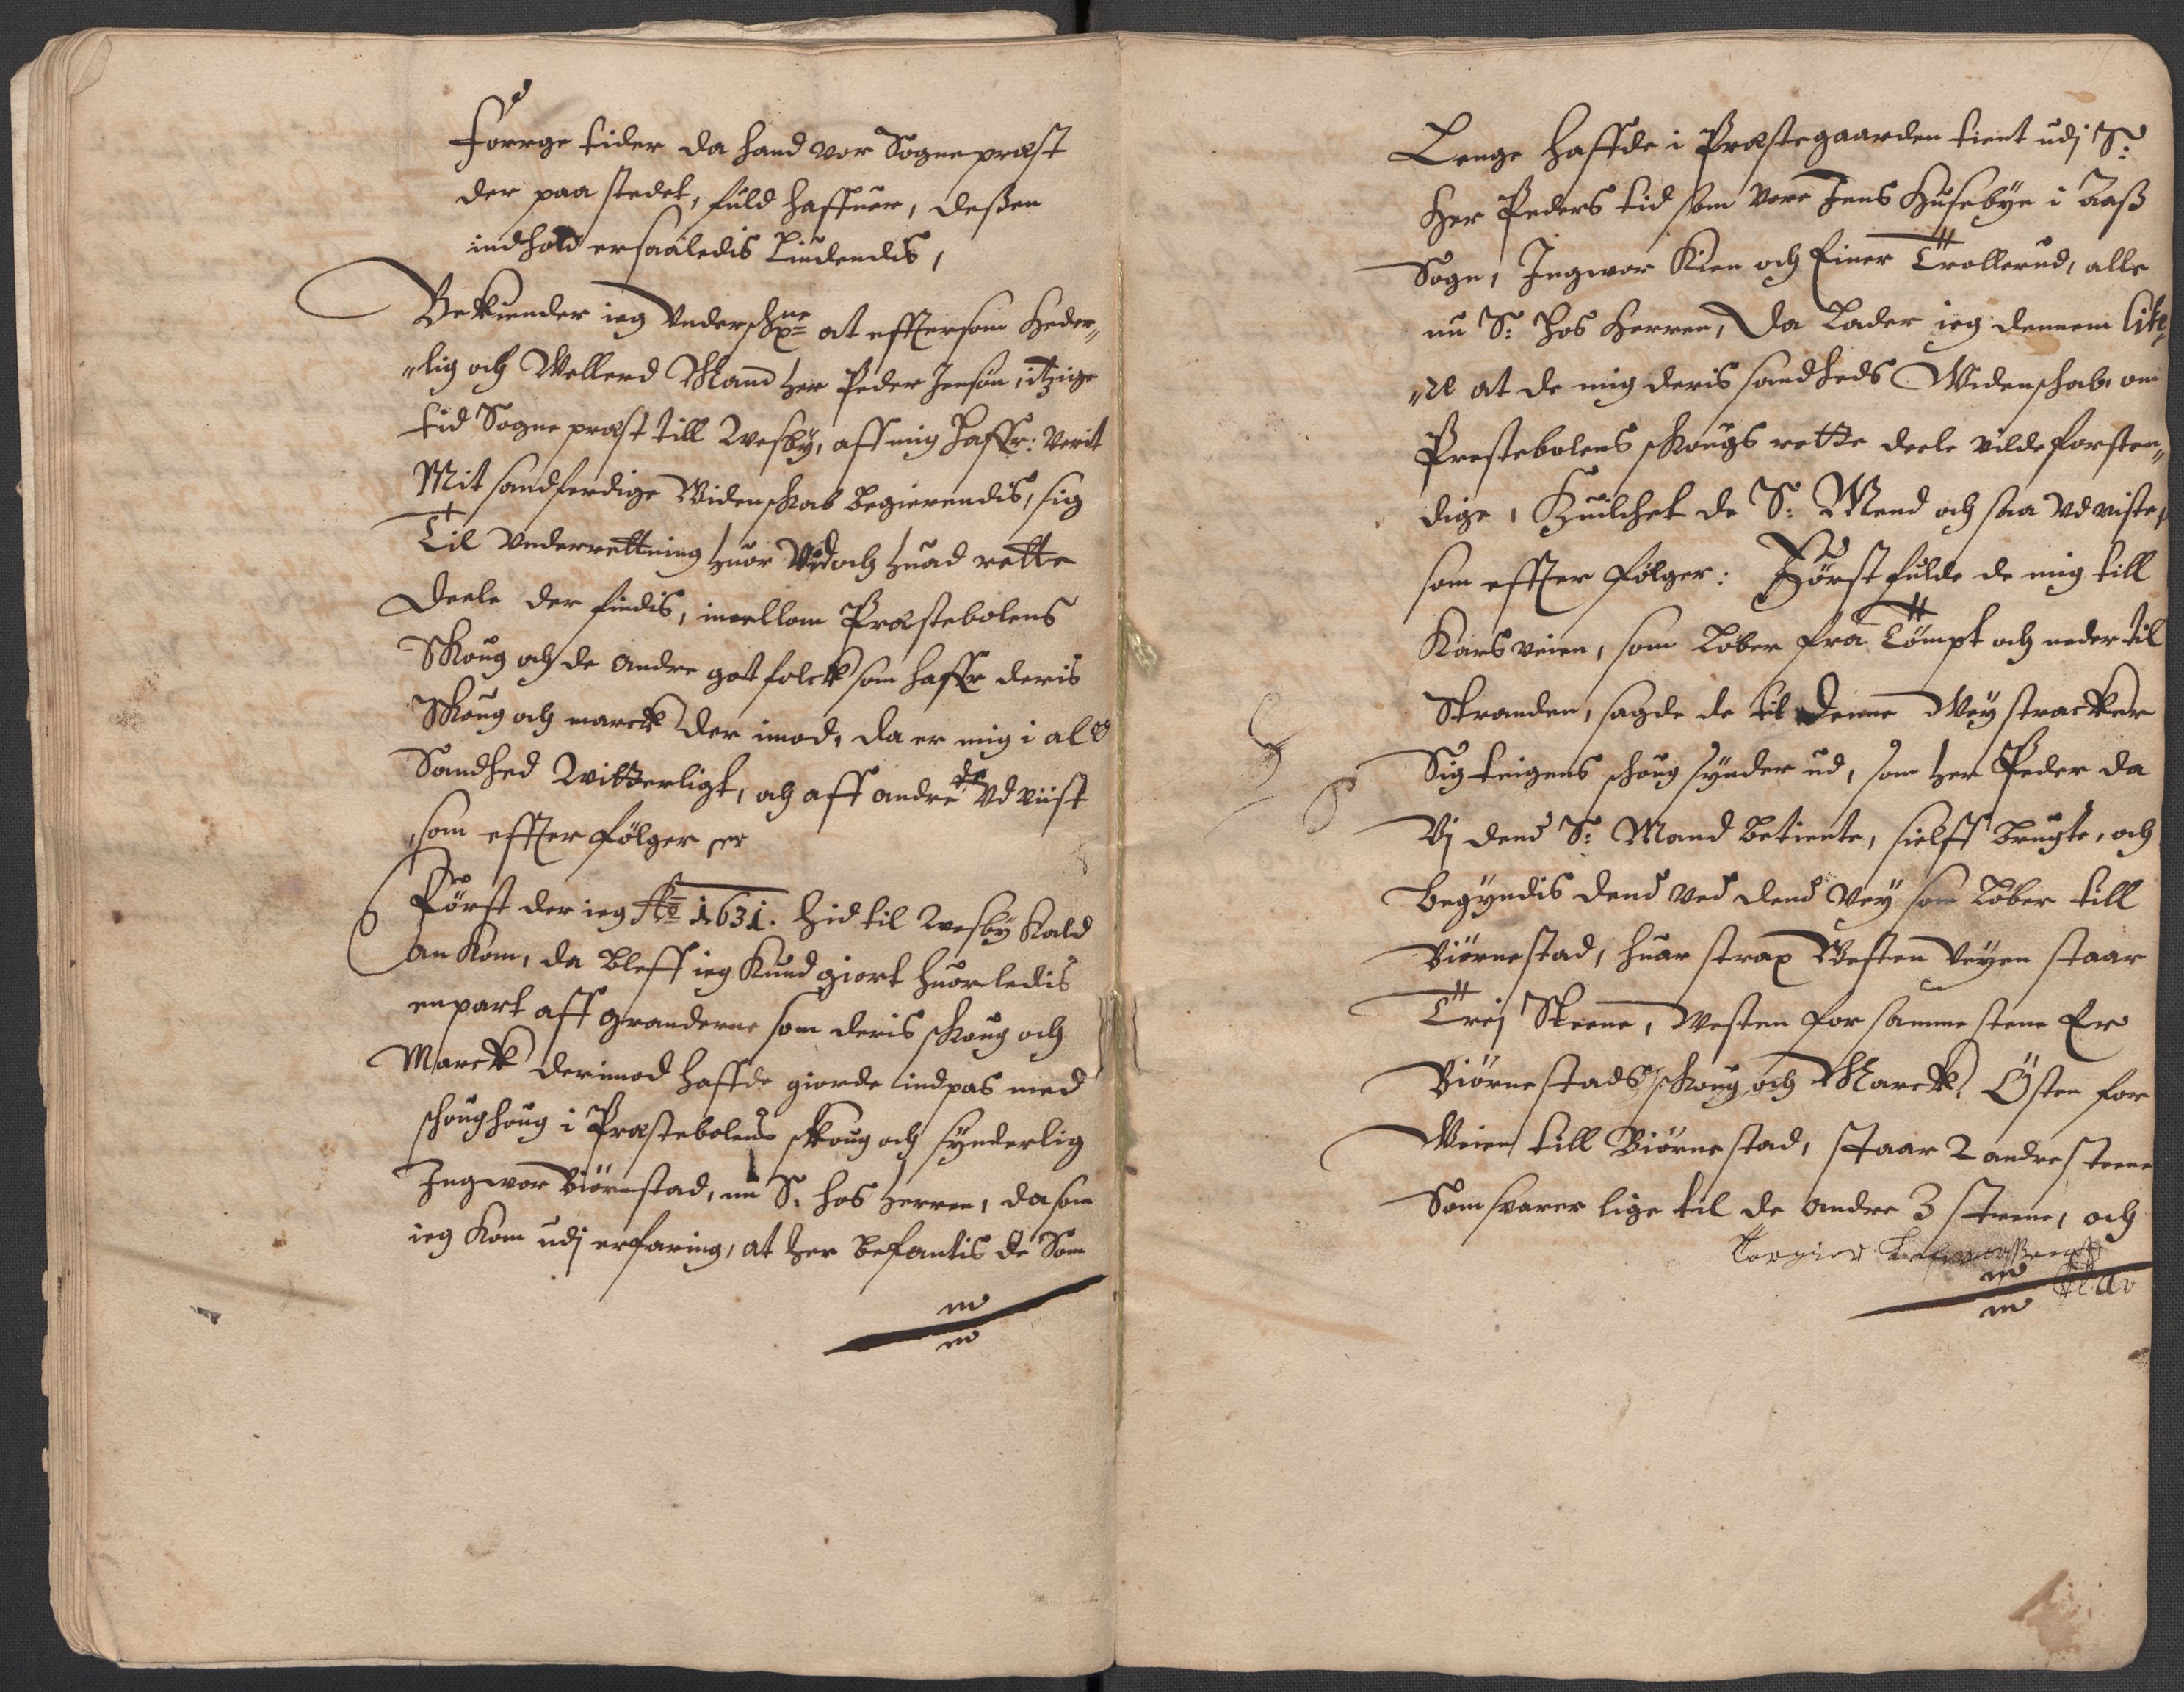 Forrge tider da hand vor Sognepræst
der paa stedet, fuld haffuer, deßen
indhold ersaaledis Liudendis,
Bekiender ieg Underschne at efftersom Heder„
„lig och Wellerd Mand her Peder Jensøn, itzige
tid Sognepræst till Wesby, aff mig haffr: verit
Mit sandferdige Widenskab begierendis, sig
Til Underrettning huor Ved och huad rette
Deele der findis, imellom Præstebolens
Skoug och de andre got folck som haffr deris
Skoug och marck der imod, da er mig i ald
Sandhed Witterligt, och aff andre de Udviist
som effter følger
Först der ieg Ao 1631. hid til Wesby Kald
an kom, da bleff ieg Kundgiort huorledis
enpart aff granderne som deris skoug och
Marck derimod haffde giorde indpas med
schoughoug i Præstebolens skoug och synderlig
Ingwor Biörnstad, nu S. hos Herren, da som
ieg kom udj erfaring, at her befantis de Som
Lenge haffde i Præstegaarden tient udj S:
Her Peders tid som vore Jens Husebye i Aaß
Sogn, Ingwor Kien och Einer Trollerud, alle
nu S: hos Herren, Da Lader ieg dennem cite„
„re at de mig deris sandheds Widenschab om
Prestebolens skougs rette deele vilde forsten„
dige, Huilchet de S: Mend och saa Udviste,
som effter følger: Först fulde de mig till
Karsveien, som Löber fra Tömpt och neder til
Stranden, sagde de til denne Wey stracker
Sig teigens schoug synder ud, som her Peder da
Vj dend S: Mand betiente, sielff brugte, och
begyndis dend ved dend vey som Löber till
Biörnestad, huar strax Westen Veyen staar
Trej Steene, Westen for samme stene Er
Biörnestads skoug och Marck. Östen for
Weien till Biörnestad, staar 2 andre steene
Som svarer lige til de andre 3 steene, och